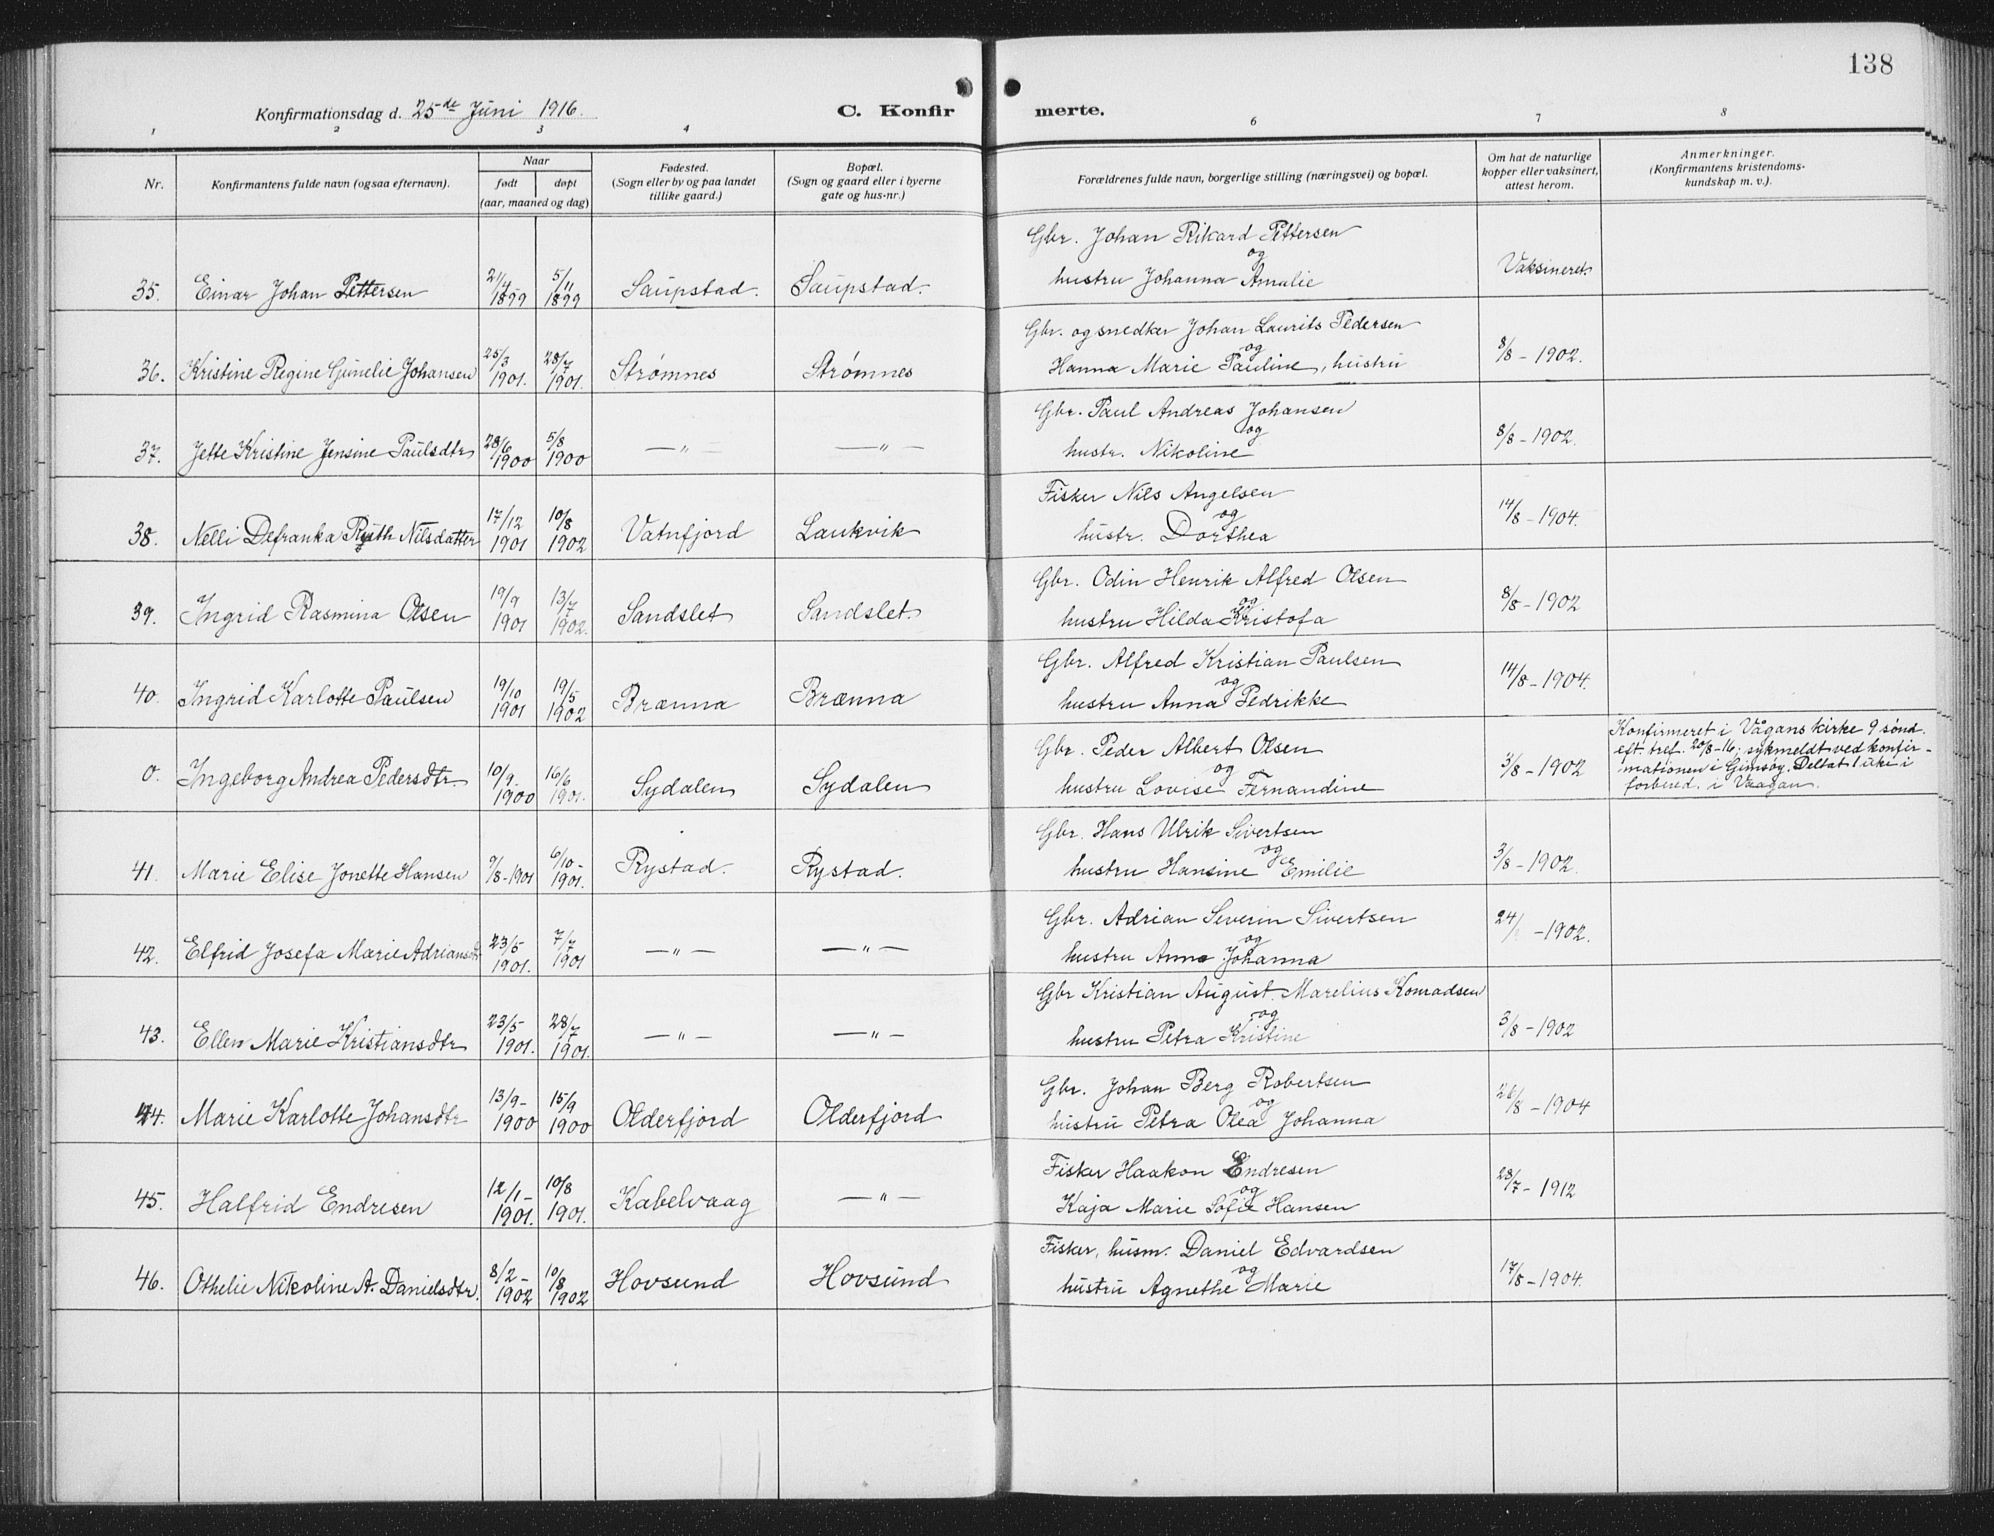 138
Konfirmationsdag d. 25de Juni 1916.
C. Konfirmerte.
1 2 3 4 6 7 8
Nr.
Konfirmantens fulde navn (ogsaa efternavn).
Naar
født døpt
(aar, maaned og dag)
Fødested.
(Sogn eller by og paa landet
tillike gaard.)
Bopæl.
(Sogn og gaard eller i byerne
gate og hus-nr.)
Forældrenes fulde navn, borgerlige stilling (næringsvei) og bopæl.
Om hat de naturlige
kopper eller vaksinert,
attest herom.
Anmerkninger.
(Konfirmantens kristendoms-
kundskap m. v.).
35. Einar Johan Pettersen 21/4 1899 5/11 1899 Saupstad. Saupstad.
Gbr. Johan Rikard Pettersen
og
hustru Johanna Amalie
Vaksineret
36. Kristine Regine Gunelie Johansen 25/3 1901. 28/7 1901. Strømnes Strømnes
Gbr. og snedker Johan Laurits Pedersen
og
Hanna Marie Pauline, hustru
8/8 - 1902.
37. Jette Kristine Jensine Paulsdtr 28/6 1900 5/8 1900 — " — — " —
Gbr. Paul Andreas Johansen
og
hustr. Nikoline
8/8 - 1902.
38. Nelli Defranka Ruth Nilsdatter 17/12 1901 10/8 1902 Vatnfjord Laukvik
Fisker Nils Angelsen
og
hustr. Dorthea
14/8 - 1904.
39. Ingrid Rasmina Olsen 19/9 1901 13/7 1902. Sandslet Sandslet
Gbr. Odin Henrik Alfred Olsen
og
hustru Hilda Kristofa
8/8 - 1902
40. Ingrid Karlotte Paulsen 19/10 1901 19/5 1902 Brænna Brænna
Gbr. Alfred Kristian Paulsen
og
hustru Anna Pedrikke
14/8 - 1904.
0. Ingeborg Andrea Pedersdtr. 10/9 1900 16/6 1901. Sydalen Sydalen
Gbr. Peder Albert Olsen
og
hustru Lovise Fernandine
3/8 - 1902
Konfirmeret i Vågans kirke 9 sønd.
eft. tref. 20/8-16; sykmeldt ved konfir-
mationen i Gimsøy. Deltat 1 uke i
forbered. i Vaagan.
41. Marie Elise Jonette Hansen 9/8-1901 6/10- 1901. Rystad. Rystad.
Gbr. Hans Ulrik Sivertsen
og
hustru Hansine Emilie
3/8 - 1902.
42. Elfrid Josefa Marie Adriansd 23/5 1901. 7/7 1901 — " — — " —
Gbr. Adrian Severin Sivertsen
og
hustru Anna Johanna
24/ - 1902.
43. Ellen Marie Kristiansdtr 23/5 1901. 28/7 1901. — " — — " —
Gbr Kristian August Marelius Konradsen
og
hustru Petra Kristine
3/8 - 1902
44. Marie Karlotte Johansdtr 13/9- 1900 15/9 1900 Olderfjord Olderfjord
Gbr. Johan Berg Robertsen
og
hustru Petra Olea Johanna
26/8 - 1904
45. Halfrid Endresen 12/1- 1901. 10/8 1901. Kabelvaag — " —
Fisker Haakon Endresen
og
Kaja Marie Sofie Hansen
28/7 - 1912
46. Othelie Nikoline A. Danielsdtr. 8/2- 1902 10/8 1902 Hovsund Hovsund
Fisker, husm. Daniel Edvardsen
og
hustru Agnethe Marie
17/8 - 1904.